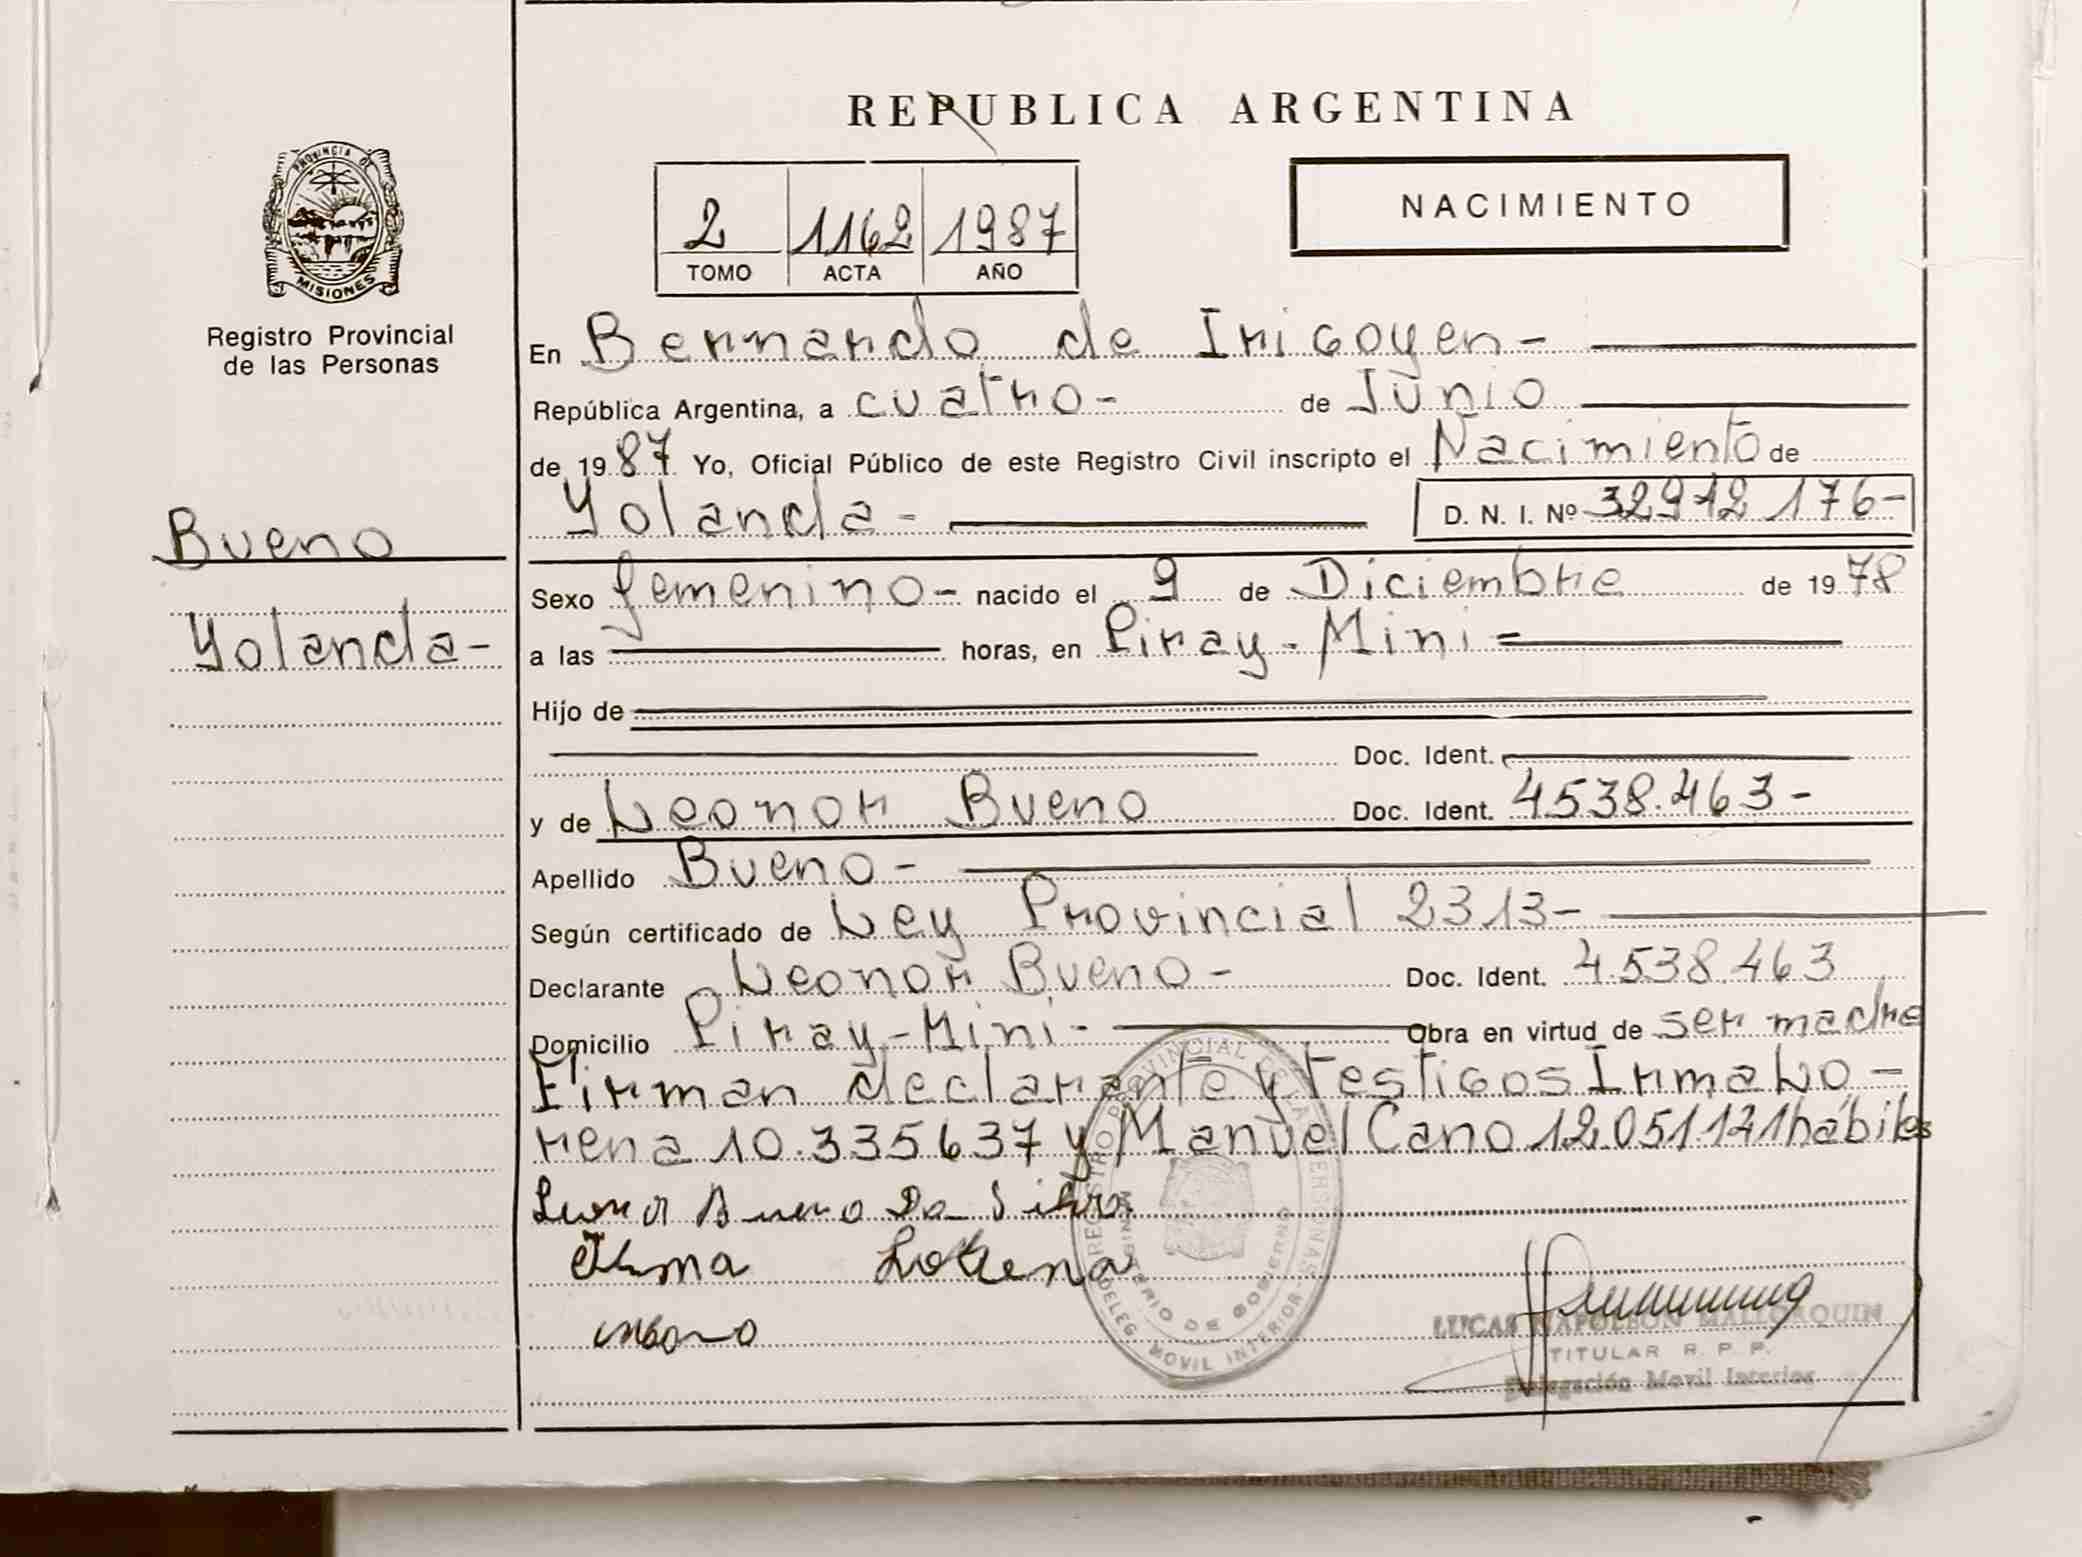 REPUBLICA ARGENTINA
PROVINCIA DE
MISIONES
Registro Provincial
de las Personas
2 1162 1987
TOMO ACTA AÑO
NACIMIENTO
En Bernardo de Irigoyen-
República Argentina, a cuatro- de Junio
de 1987 Yo, Oficial Público de este Registro Civil inscripto el Nacimiento de
Yolanda- D. N. I. Nº 32912176-
Bueno
Yolanda-
Sexo femenino- nacido el 9 de Diciembre de 1978
a las horas, en Piray-Mini=
Hijo de
Doc. Ident.
y de Leonor Bueno Doc. Ident. 4538.463-
Apellido Bueno-
Según certificado de Ley Provincial 2313-
Declarante Leonor Bueno- Doc. Ident. 4.538.463
Domicilio Piray-Mini- Obra en virtud de ser madre
Firman declarante y testigos Irma Lo-
rena 10.335637 y Manuel Cano 12.051.121 hábiles
Leonor Bueno Da Silva
Irma Lorena
REGISTRO PROVINCIAL DE LAS PERSONAS
MINISTERIO DE GOBIERNO
DELEG. MOVIL INTERIOR
LUCAS NAPOLEON MALLORQUIN
TITULAR R. P. P.
Delegación Movil Interior